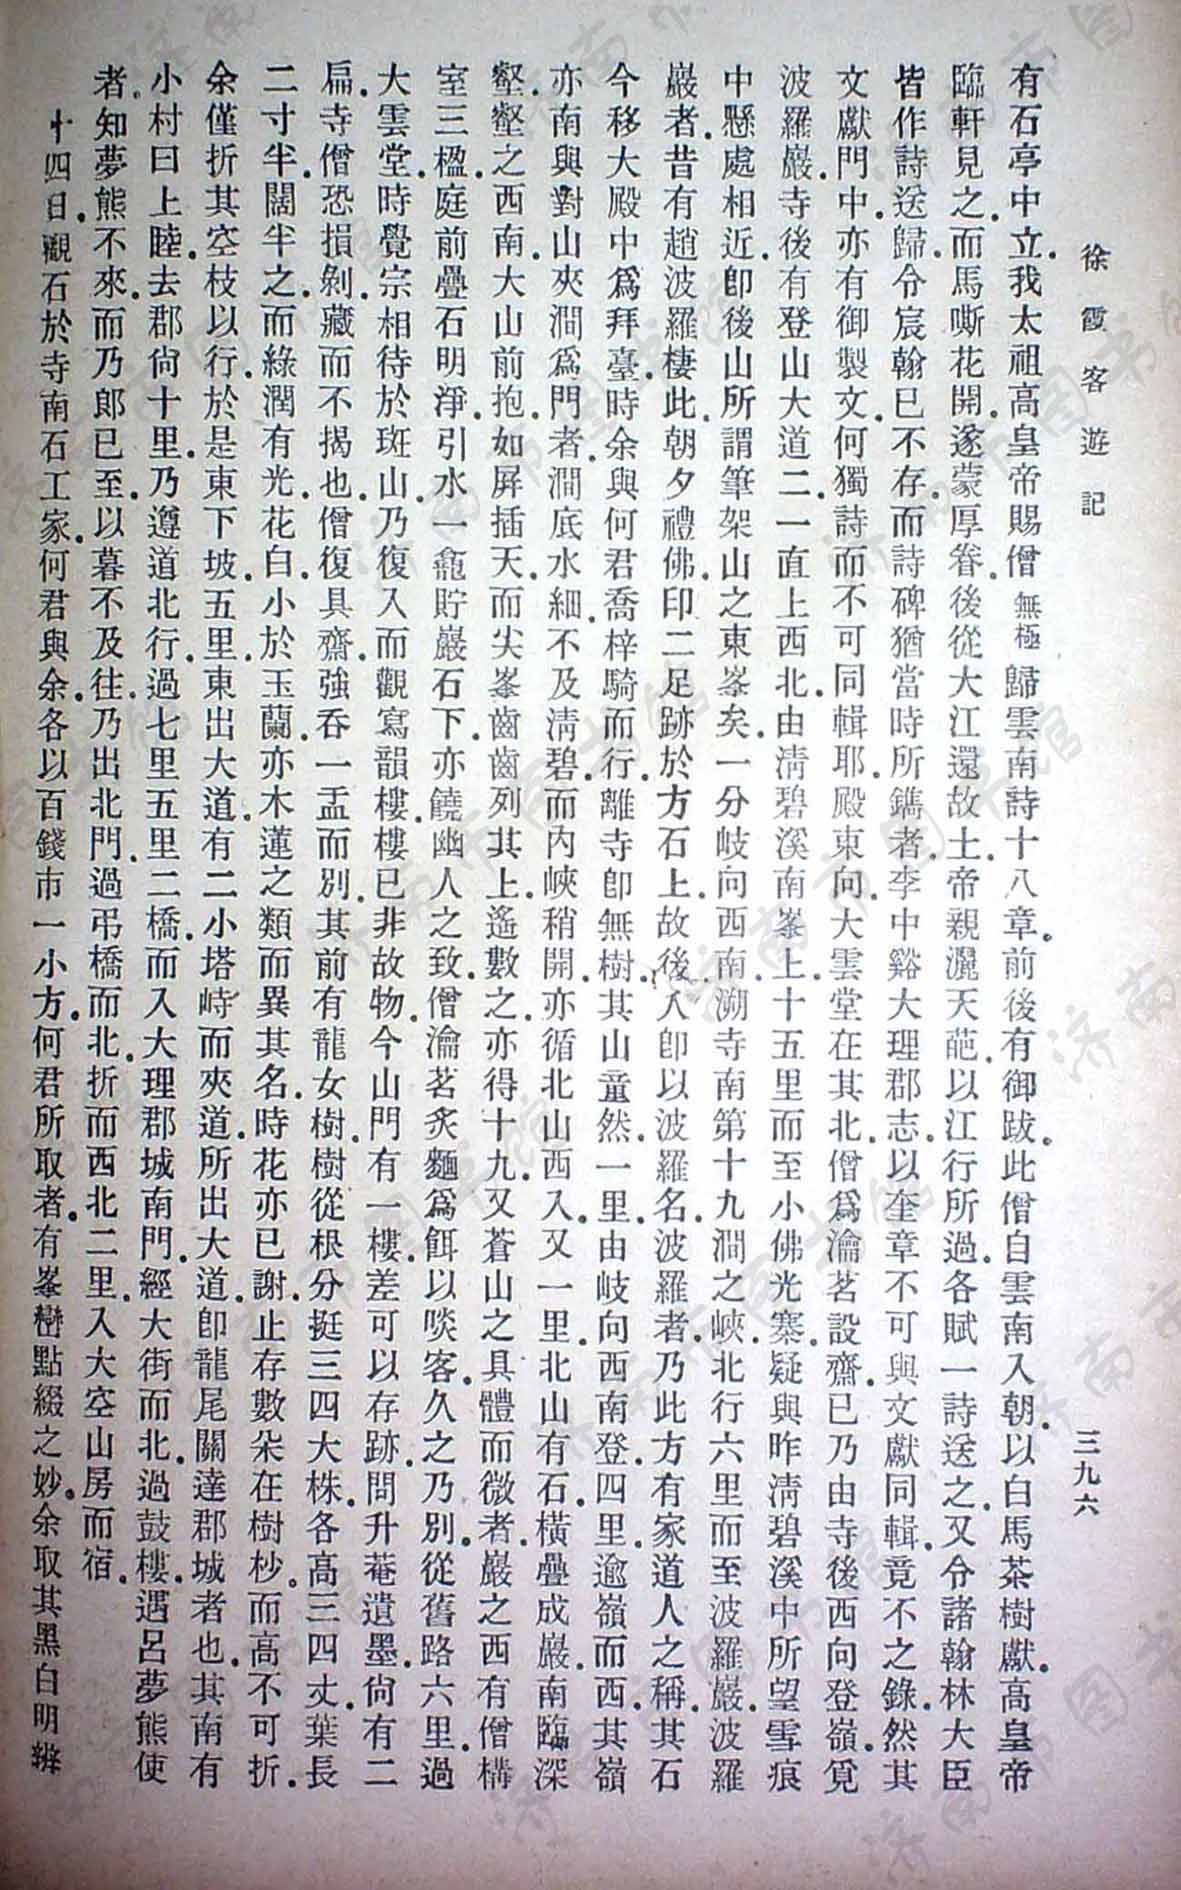 徐霞客遊記
三九六
有石亭中立.我太祖高皇帝賜僧無極歸雲南詩十八章.前後有御跋.此僧自雲南入朝.以白馬茶樹獻.高皇帝
臨軒見之.而馬嘶花開.遂蒙厚眷.後從大江還故土.帝親灑天葩.以江行所過.各賦一詩送之.又令諸翰林大臣
皆作詩送歸.令宸翰已不存.而詩碑猶當時所鐫者.李中谿大理郡志.以奎章不可與文獻同輯.竟不之錄.然其
文獻門中.亦有御製文.何獨詩而不可同輯耶.殿東向.大雲堂在其北.僧爲瀹茗設齋.已乃由寺後西向登嶺.覓
波羅巖.寺後有登山大道二.一直上西北.由清碧溪南峯上.十五里而至小佛光寨.疑與昨清碧溪中所望雪痕
中懸處相近.卽後山所謂筆架山之東峯矣.一分岐向西南.溯寺南第十九澗之峽.北行六里而至波羅巖.波羅
巖者.昔有趙波羅棲此.朝夕禮佛.印二足跡於方石上.故後人卽以波羅名.波羅者.乃此方有家道人之稱.其石
今移大殿中爲拜臺.時余與何君喬梓騎而行.離寺卽無樹.其山童然.一里.由岐向西南登.四里.逾嶺而西.其嶺
亦南與對山夾澗爲門者.澗底水細.不及清碧.而內峽稍開.亦循北山西入.又一里.北山有石.橫疊成巖.南臨深
壑.壑之西南.大山前抱.如屏插天.而尖峯齒齒列其上.遙數之.亦得十九.又蒼山之具體而微者.巖之西有僧構
室三楹.庭前疊石明淨.引水一龕貯巖石下.亦饒幽人之致.僧瀹茗炙麵爲餌以啖客.久之乃別.從舊路六里.過
大雲堂.時覺宗相待於斑山.乃復入而觀寫韻樓.樓已非故物.今山門有一樓.差可以存跡.問升菴遺墨.尙有二
扁.寺僧恐損剝.藏而不揭也.僧復具齋.強吞一盂而別.其前有龍女樹.樹從根分挺三四大株.各高三四丈.葉長
二寸半.闊半之.而綠潤有光.花白.小於玉蘭.亦木蓮之類而異其名.時花亦已謝.止存數朵在樹杪.而高不可折.
余僅折其空枝以行.於是東下坡.五里.東出大道.有二小塔峙而夾道.所出大道.卽龍尾關達郡城者也.其南有
小村曰上睦.去郡尙十里.乃遵道北行.過七里五里二橋.而入大理郡城南門.經大街而北.過鼓樓.遇呂夢熊使
者.知夢熊不來.而乃郎已至.以暮不及往.乃出北門.過弔橋而北.折而西北二里.入大空山房而宿.
十四日.觀石於寺南石工家.何君與余.各以百錢市一小方.何君所取者.有峯巒點綴之妙.余取其黑白明辨